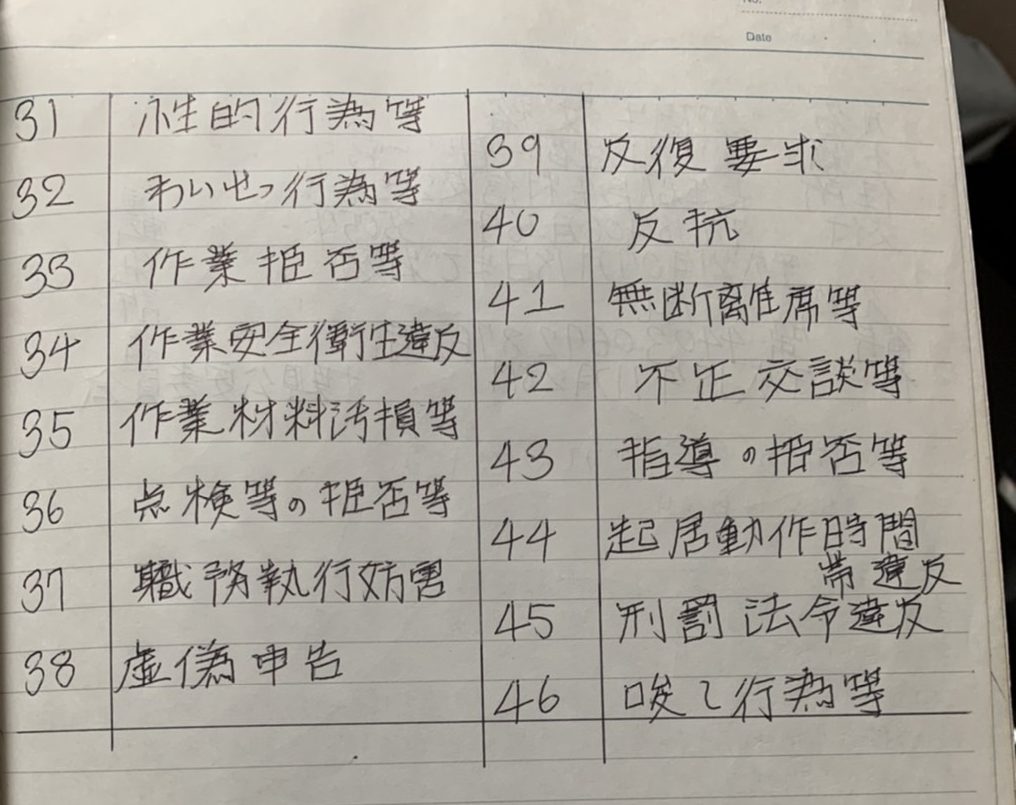 No.
Date
31 性的行為等
32 わいせつ行為等
33 作業拒否等
34 作業安全衛生違反
35 作業材料汚損等
36 点検等の拒否等
37 職務執行妨害
38 虚偽申告
39 反復要求
40 反抗
41 無断離席等
42 不正交談等
43 指導の拒否等
44 起居動作時間
帯違反
45 刑罰法令違反
46 唆し行為等